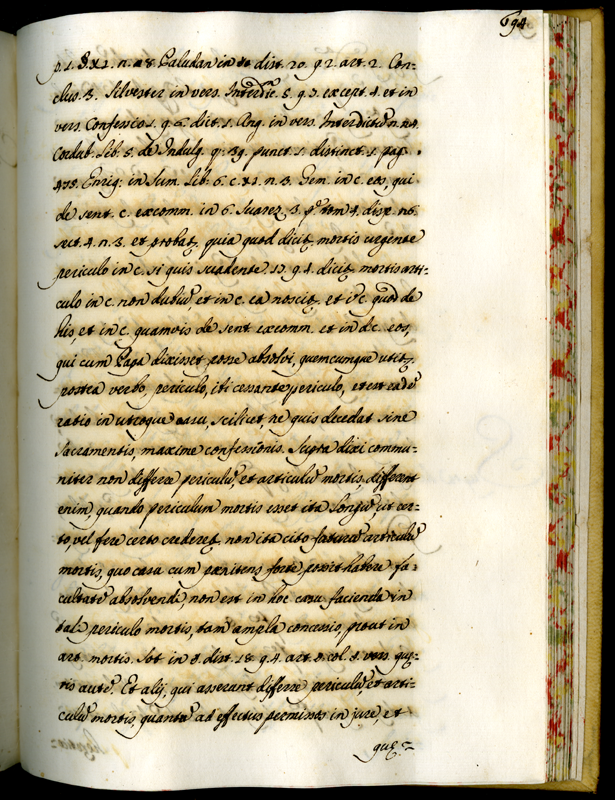 194
p. 1. n. 8. Paludan in dist. 20. q 2. art. 2. Con-
clus. 3. Silvester in vers. Interdic. 5. q. 3. except. 4. et in
vers. Confessio 1. q. dict. 1. Ang. in vers. Interdictũ n.
Cordub. Lib. 5. de Indulg. q. 39. punct. 1. distinct. 1. pag.
Enriq: in Sum. Lib. 6. c. n. 3. Gem. in c. eos, qui
de sent. c. excomm. in 6. Suarez 3. p. tom 4. disp.
sect. 4. n. 3. et probat, quia quod dicit mortis urgente
periculo in c. si quis suadente. 17. q. 4. dicit mortis arti-
culo in c. non dubiũ, et in c. ea noscit. et in c. quod de
his, et in c. quamvis de sent. excomm. et in d.c. eos,
qui cum Papa dixisset posse absolvi, quemcumque utit.
postea verbo periculo, ibi cessante periculo, et est eadẽ
ratio in utroque casu, scilicet, ne quis decedat sine
Sacramentis, maxime confessionis. Supra dixi commu-
niter non differre periculũ, et articulũ mortis, different
enim, quando periculum mortis esset ita longũ, ut cer-
to, vel fere certo crederet, non ita cito futurũ articulũ
mortis, quo casu cum pænitens forte possit habere fa-
cultatẽ absolvendi, non est in hoc casu facienda in
tali periculo mortis, tam ampla concessio, prout in
art. mortis. Sot. in dist. 18. q. 4. art. col. vers. quę-
ris autẽ. Et alij, qui asserunt differre periculũ et arti-
culũ mortis, quantũ ad effectus permissos in jure, et
quę